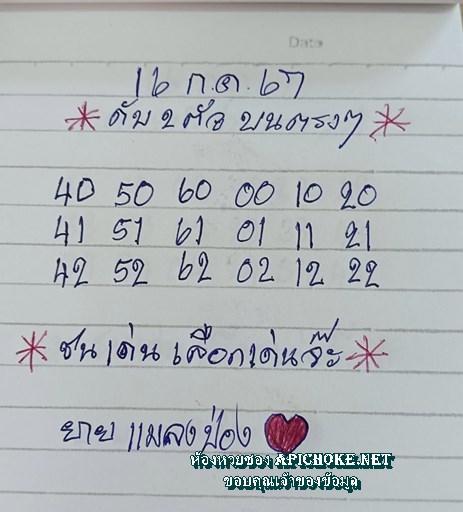 Date
16 ก.ค. 67
ดับ 2 ตัว บนตรงๆ
40 50 60 00 10 20
41 51 61 01 11 21
42 52 62 02 12 22
ชนเด่น เลือกเด่นจ๊ะ
ยาย แมลงป่อง
ห้องหวยซอง APICHOKE.NET
ขอบคุณเจ้าของข้อมูล